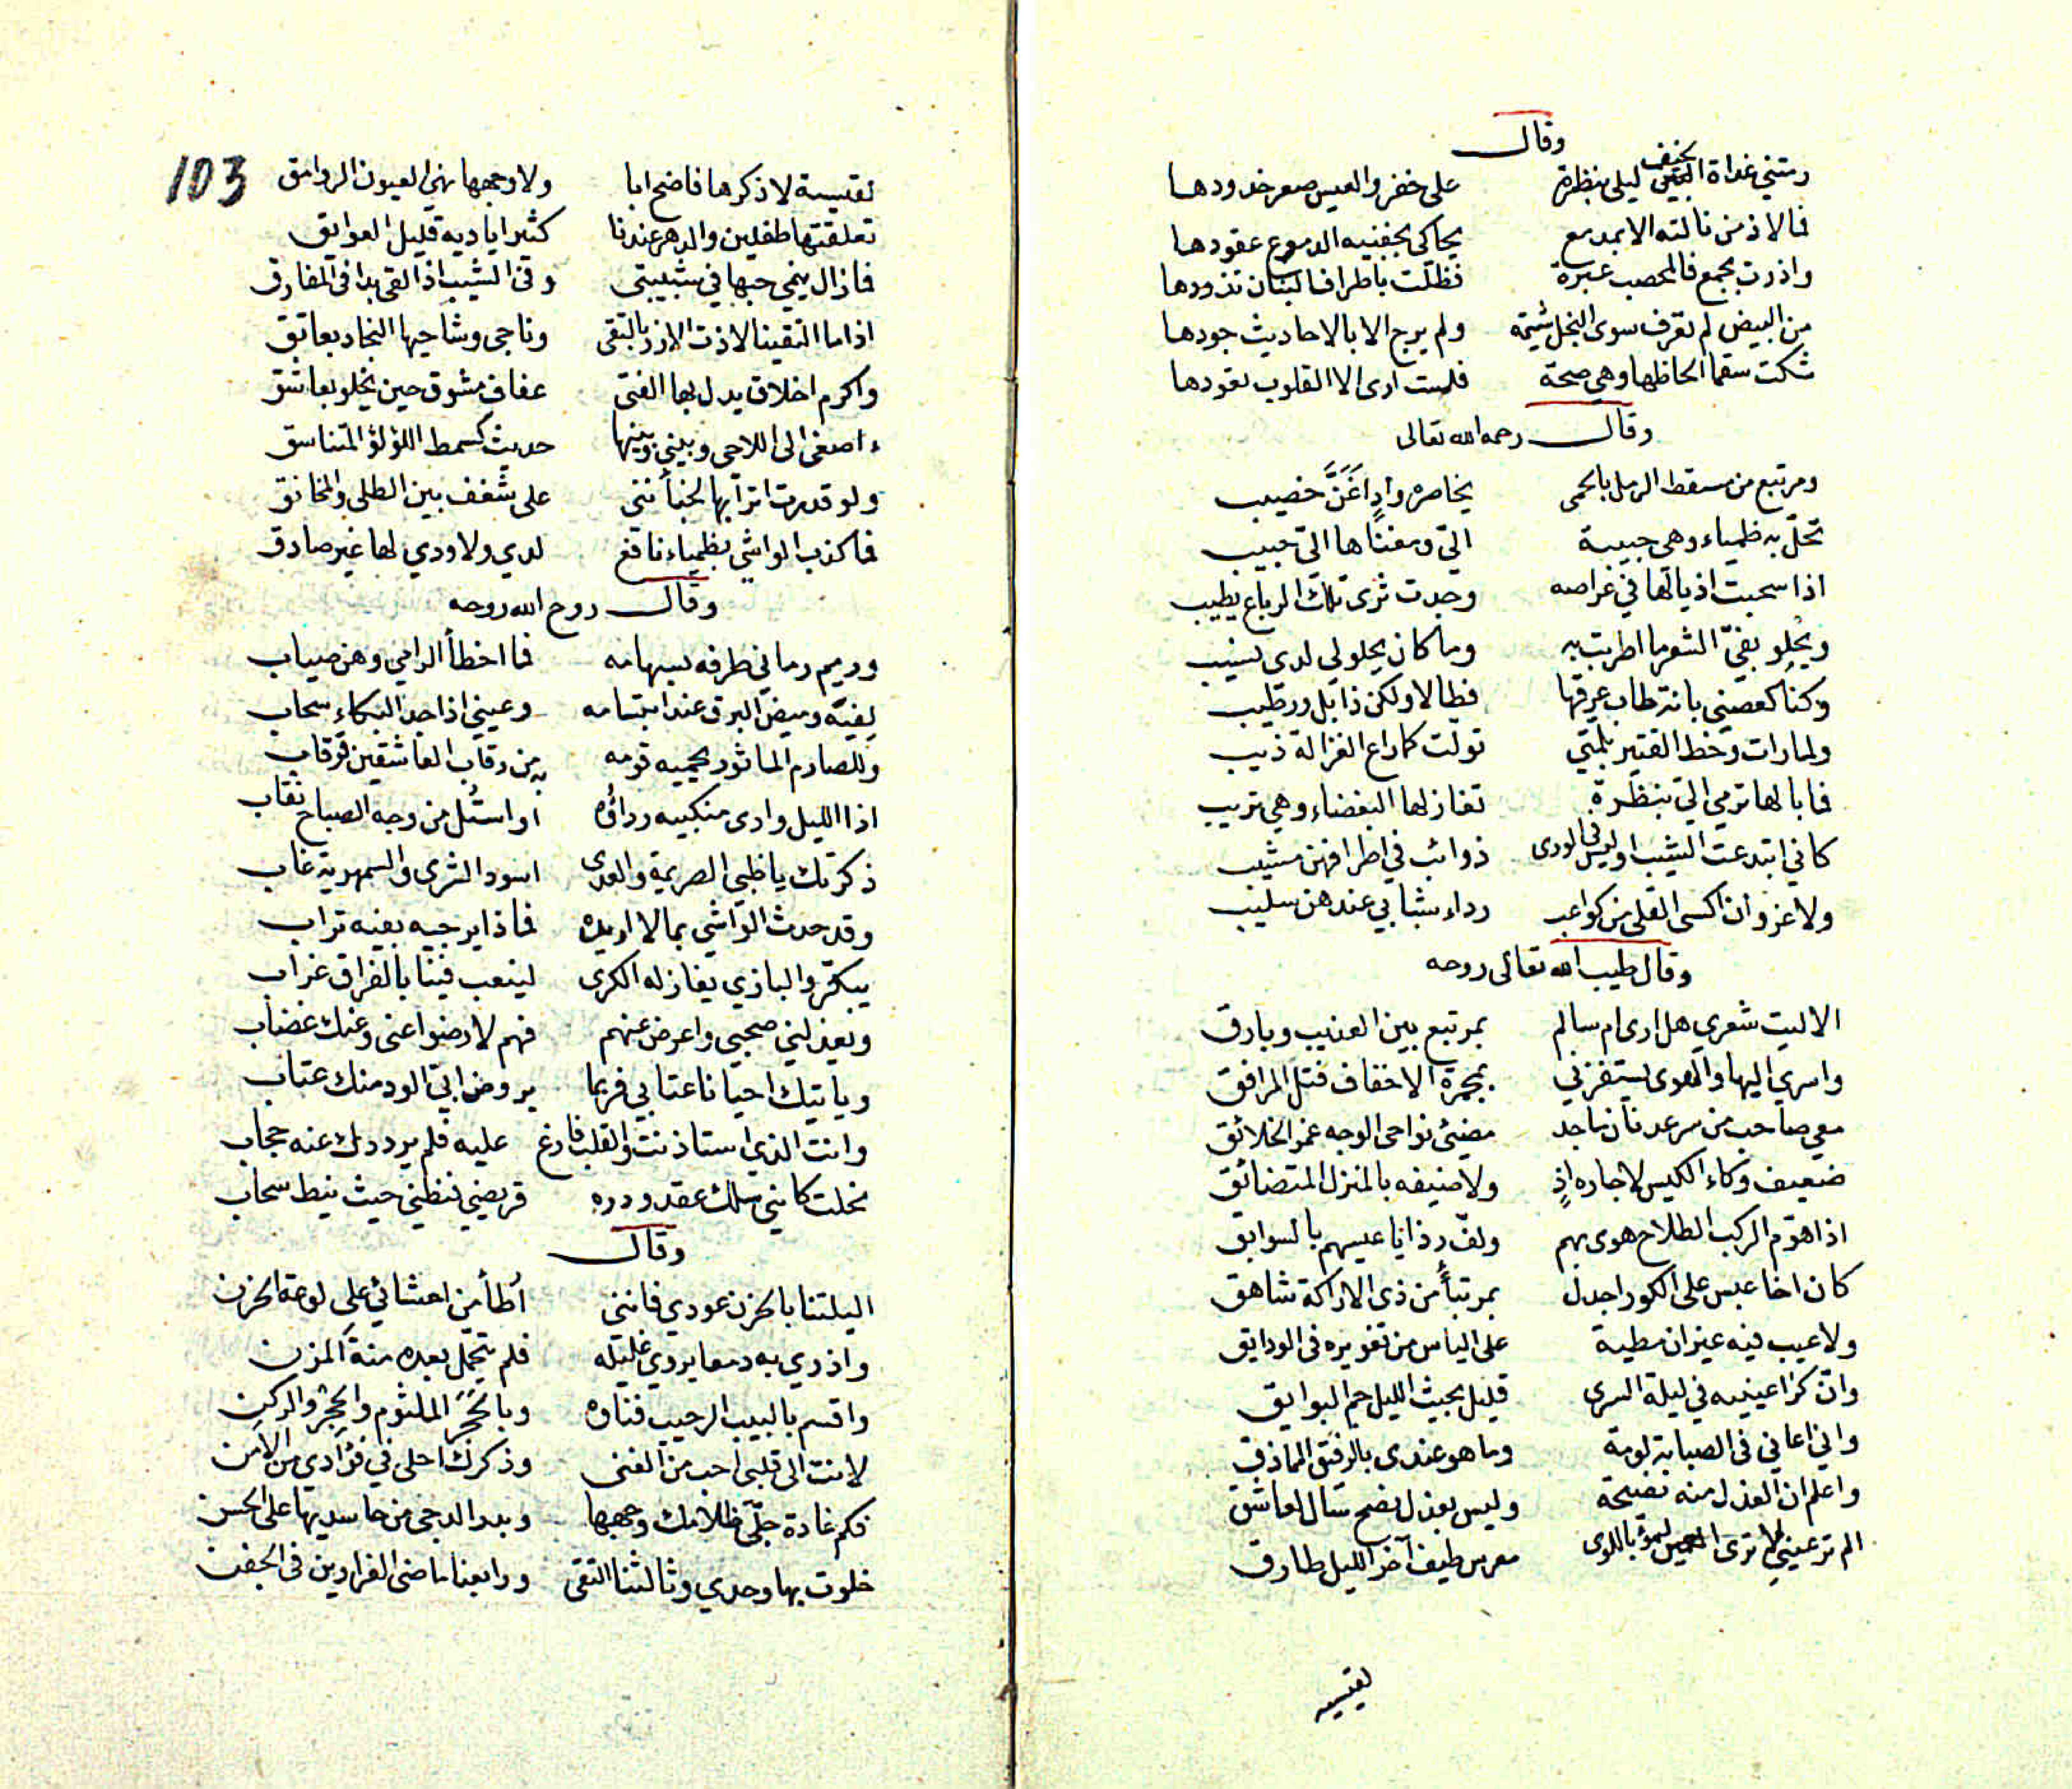 وقال
رمتني غداة الخيف ليلى بنظرة على خفر والعيس صعر خدودها
فما لاذ من نالته الا بمدمع يحاكي بجفنيه الدموع عقودها
واذرت بجمع فالمحصب عبرة فظلت باطراف البنان تذودها
من البيض لم تعرف سوى البخل شيمة ولم يرج الا بالاحاديث جودها
شكت سقما الحاظها وهي صحة فلست ارى الا القلوب تعودها
وقال رحمه الله تعالى
ومرتبع من مسقط الرمل بالحمى يخاصره وادٍ اَغَنَّ خصيب
تحلّ به ظمياء وهي حبيبة اليّ ومغناها اليّ حبيب
اذا سحبت اذيالها في عراصه وجدت ثرى تلك الرباع يطيب
ويحلو بفيّ الشعر ما اطربت به وما كان يحلو لي لدى نسيب
وكنا كغصني بانة طاب عرقها فطالا ولكن ذابل ورطيب
ولما رات وخط القتير بلمتي تولت كما راع الغزالة ذيب
فما بالها ترمي اليّ بنظرة تغازلها البغضاء وهي تريب
كاني ابتدعت الشيب او ليس في الورى ذوائب في اطرافهن مشيب
ولا غزو ان اكسى القلى من كواعب رداء شبابي عندهن سليب
وقال طيب الله تعالى روحه
الا ليت شعري هل ارى ام سالم بمرتبع بين العذيب وبارق
واسري اليها والهوى يستفزني بمجمرة الاخفاف فتل المرافق
معي صاحب من سر عدنان ماجد مضيئ نواحي الوجه غمر الخلائق
ضعيف وكاء الكيس لا جاره اذٍ ولا ضيفه بالمنزل المتضائق
اذا هوّم الركب الطلاح هوى بهم ولفّ رذايا عيسهم بالسوابق
كان اخا عبس على الكور اجدل بمرتبأٍ من ذي الاراكة شاهق
ولا عيب فيه غير ان مطية على الياس من تغويره في الودايق
وانّ كرا عينيه في ليلة السرى قليل بحيث الليل جم البوايق
واني اعاني في الصبابة لومة وما هو عندي بالرفيق المماذق
واعلم ان العذل منه نصيحة وليس بعذل نصح سال لعاشق
الم تر عيني لا ترى العيس باللوى معرس طيف آخر الليل طارق
لقيسيه
103
لقيسية لا ذكرها فاضح ابا ولا وجهها نهي العيون الروامق
تعلقتها طفلين والدهر عندنا كثير اياديه قليل العوايق
فما زال ينمي حبها في شبيبتي وفي الشيب اذ القى يدا في المفارق
اذا ما التقينا لاذت الازر بالتقى وناجى وشاحيها النجاد بعاتق
واكرم اخلاق يدل بها الفتى عفاف مشوق حين يخلو بعاشق
ءاصغى الى اللاحي وبيني وبينها حديث كسمط اللؤلؤ المتناسق
ولو قدرت اترابها لخبأنني على شغف بين الطلى والمخانق
فما كذب الواشي بظمياء نافع لدي ولا ودي لها غير صادق
وقال روح الله روحه
وريم رماني طرفه بسهامه فما اخطأ الرامي وهن صياب
لفيّه وميض البرق عند ابتسامه وعيني اذا جد البكاء سحاب
وللصارم الماثور يحميه قومه به من رقاب العاشقين قرقاب
اذا الليل وارى منكبيه رداؤه او استُل من وجه الصباح نقاب
ذكرتك يا ظبي الصريمة والعدى اسود الشرى والسمهرية غاب
وقد حدث الواشي بما لا اريده فماذا يرجيه بفيه تراب
يبكّر والبازي يغازله الكرى لينعب فينا بالفراق غراب
ويعذلني صحبي واعرض عنهم فهم لا رضوا عني وعنك غضاب
وياتيك احيانا عتابي فربما يروض ابيّ الود منك عتاب
وانت الذي استاذنت والقلب فارغ عليه فلم يرددك عنه حجاب
نحلت كاني سلك عقد ودره قريضي فنظني حيث ينط سحاب
وقال
اليلتنا بالحزن عودي فانني اُطأمن احشائي على لوعة الحزن
واذري به دمعا يروي غليله فلم يتحمل بعده منة المزن
واقسم بالبيت الرحيب فناؤه وبالحَجَر الملثوم والحِجْر والركن
لانت الى قلبي احب من الغنى وذكرك احلى في فؤادي من الامن
فكم غادة جلّى ظلامك وجهها وبدر الدجى من حاسديها على الحسن
خلوت بها وحدي وثالثنا التقى ورابعنا ماضي الغرارين في الجفن